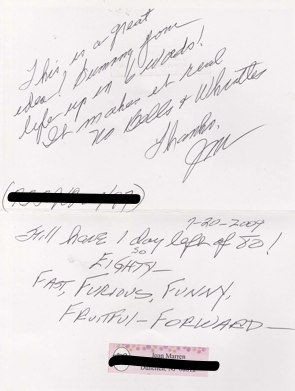 This is a great
idea! Summing your
life up in 6 words!
It makes it real
no Bells & Whistles
Thanks,
7-20-2009
Still have 1 day left of 80!
so!
EIGHTY—
FAST, FURIOUS, FUNNY,
FRUITFUL—FORWARD—
Joan Marren